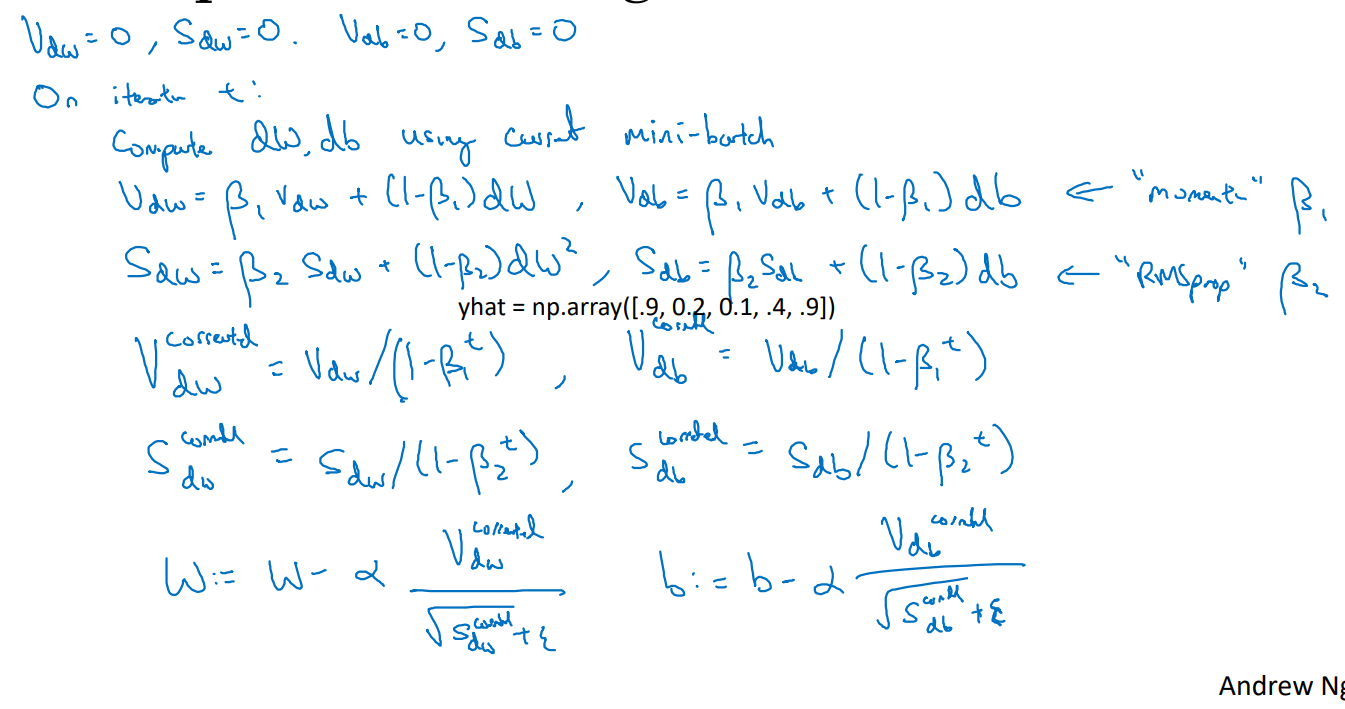 V_dw = 0, S_dw = 0. V_db = 0, S_db = 0
On iteratn t:
Compute dW, db using current mini-batch
V_dw = β_1 V_dw + (1-β_1) dW, V_db = β_1 V_db + (1-β_1) db ← "moment" β_1
S_dw = β_2 S_dw + (1-β_2) dW^2, S_db = β_2 S_db + (1-β_2) db ← "RMSprop" β_2
yhat = np.array([.9, 0.2, 0.1, .4, .9])
V_dw^corrected = V_dw/(1-β_1^t), V_db^corrected = V_db/(1-β_1^t)
S_dw^corrected = S_dw/(1-β_2^t), S_db^corrected = S_db/(1-β_2^t)
W := W - α V_dw^corrected / √S_dw^corrected + ε b := b - α V_db^corrected / √S_db^corrected + ε
Andrew Ng